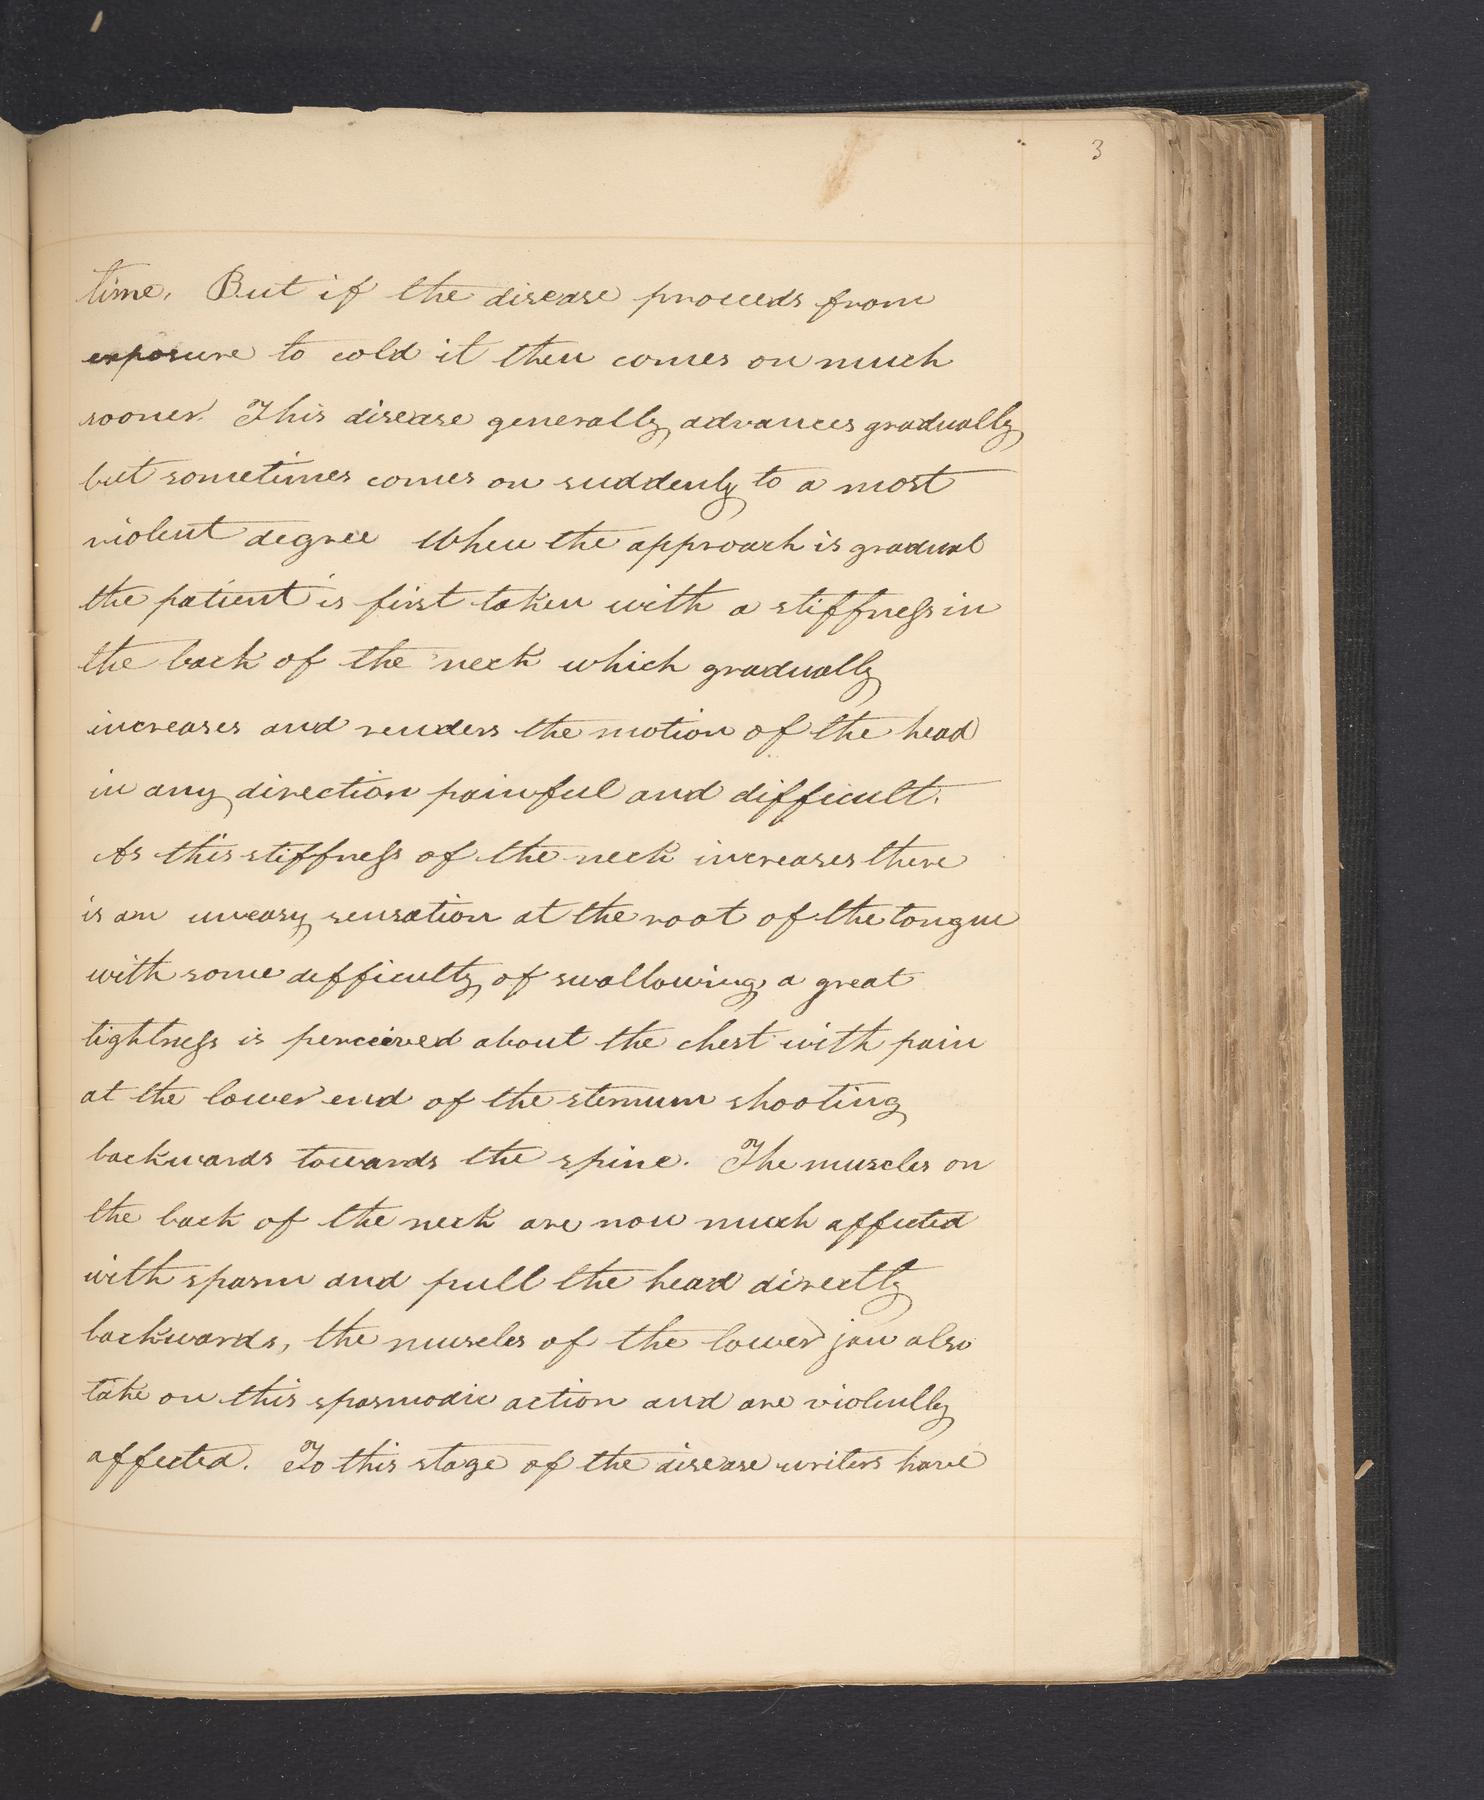 3
time. But if the disease proceeds from
exposure to cold it then comes on much
sooner. This disease generally advances gradually
but sometimes comes on suddenly to a most
violent degree When the approach is gradual
the patient is first taken with a stiffness in
the back of the neck which gradually
increases and renders the motion of the head
in any direction painful and difficult.
As this stiffness of the neck increases there
is an uneasy sensation at the root of the tongue
with some difficulty of swallowing a great
tightness is perceived about the chest with pain
at the lower end of the sternum shooting
backwards towards the spine. The muscles on
the back of the neck are now much affected
with spasm and pull the head directly
backwards, the muscles of the lower jaw also
take on this spasmodic action and are violently
affected. To this stage of the disease writers have